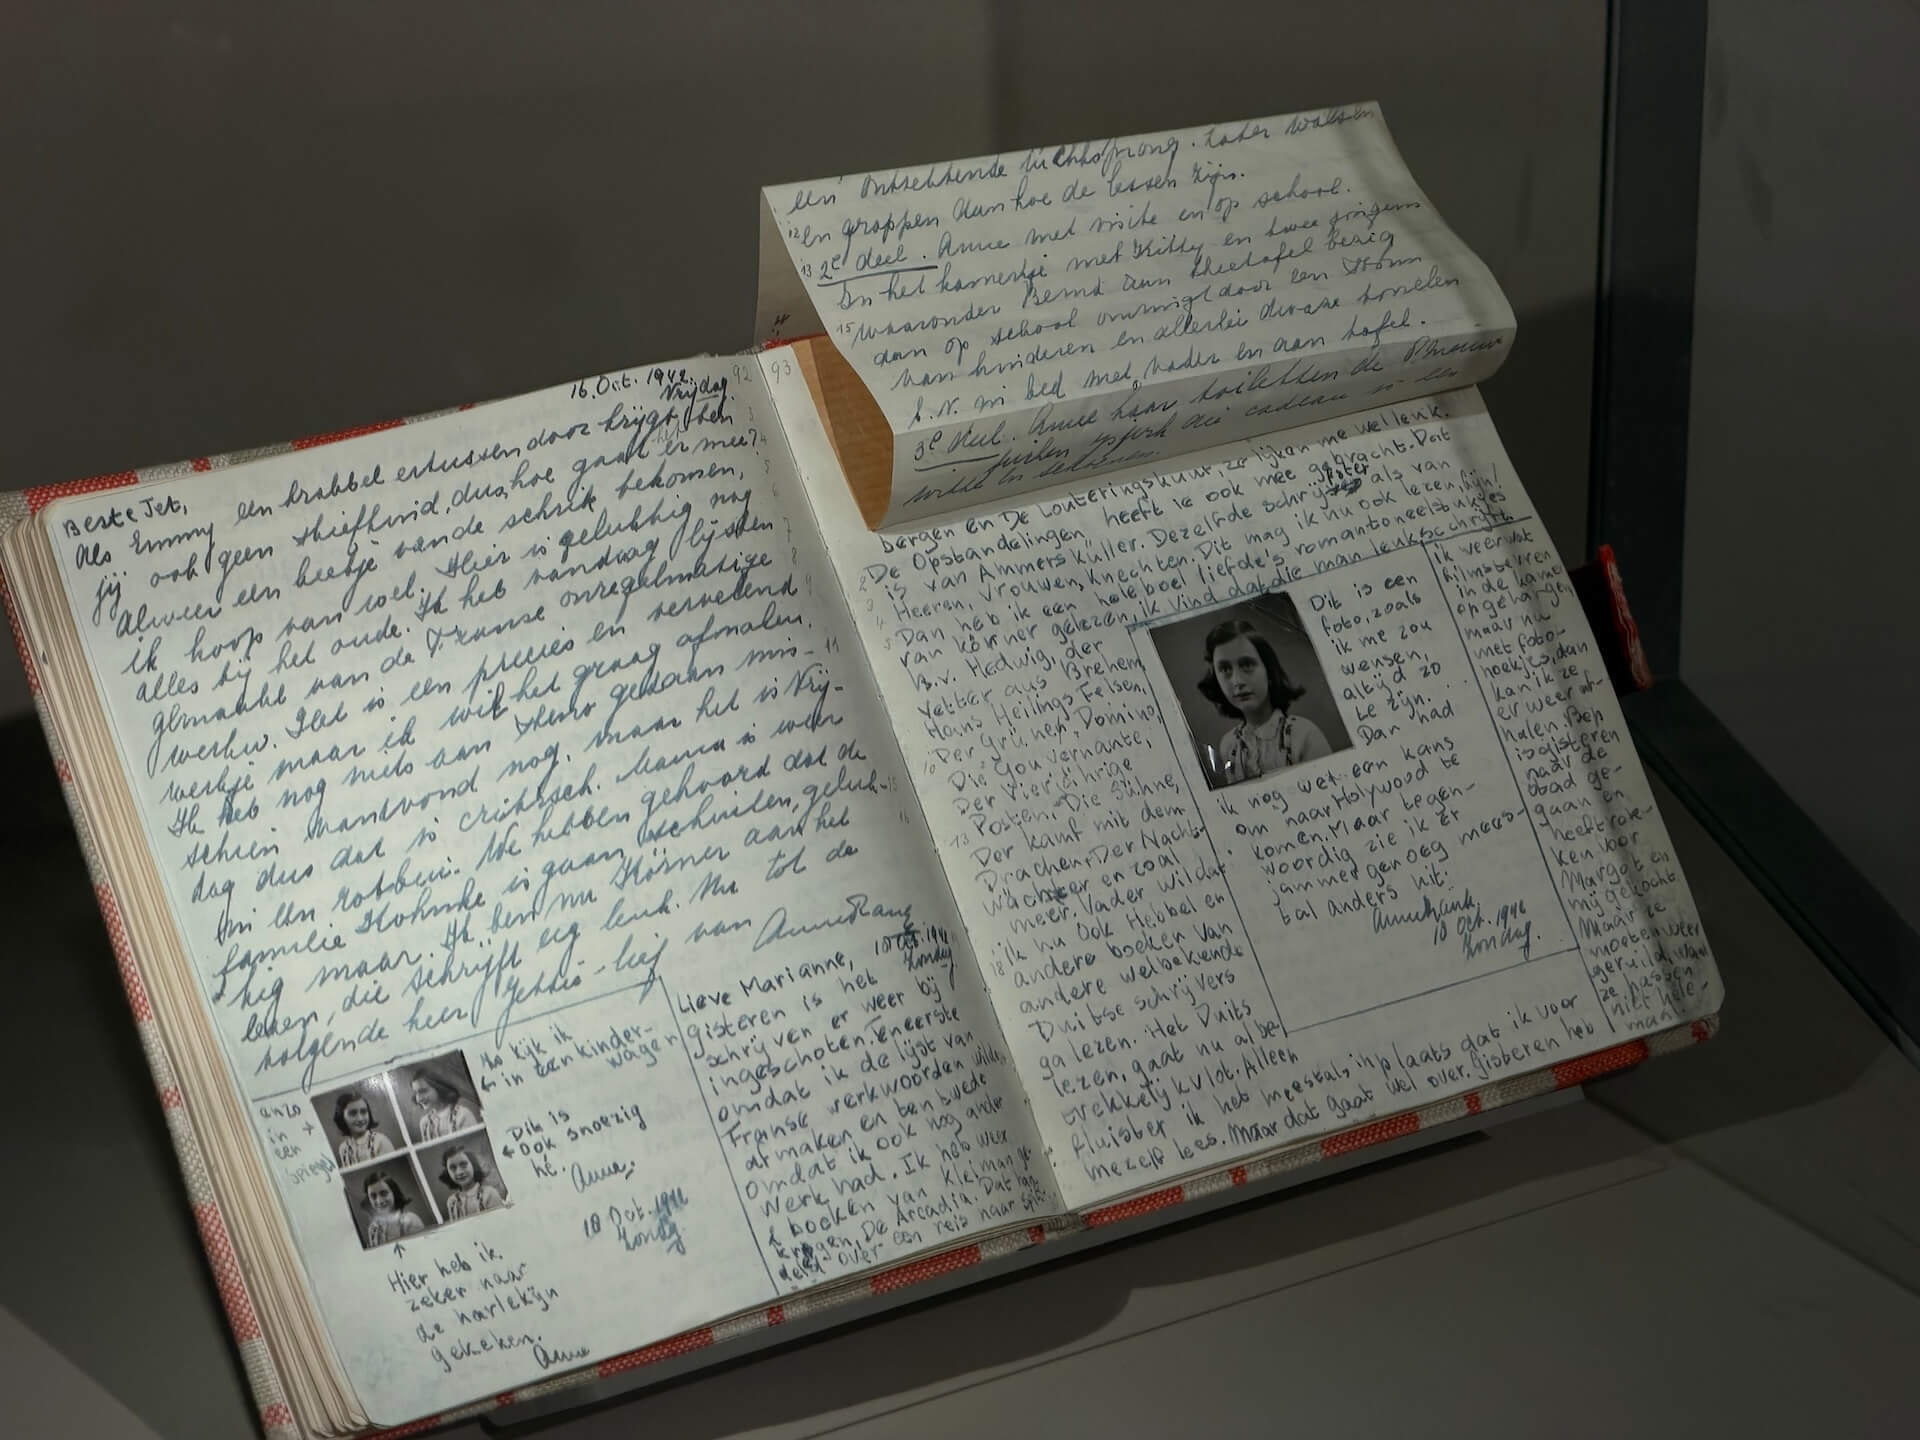 16. Oct. 1942.
Vrijdag.
92
Beste Jet,
Als Emmy een krabbel ertussendoor krijgt, ben
jij ook geen stiefkind, dus hoe gaat het er mee?
Alweer een beetje van de schrik bekomen,
ik hoop van wel. Hier is gelukkig nog
alles bij het oude. Ik heb vandaag lijsten
gemaakt van de Franse onregelmatige
werkw. Het is een precies en vervelend
werkje maar ik wil het graag afmaken.
Ik heb nog niets aan steno gedaan mis-
schien vanavond nog, maar het is Vrij-
dag dus dat is critisch. Mama is weer
in een rotbui. We hebben gehoord dat de
familie is gaan schuilen, geluk-
kig maar. Ik ben nu Körner aan het
lezen, die schrijft erg leuk. Nu tot de
volgende keer Jettie-lief van Anne Frank
anzo
in
een
spiegel
Zo kijk ik
in een kinder-
wagen
Dit is
ook snoezig
hé.
Anne.
18 Oct. 1942
Zondag
Hier heb ik
zeker naar
de harlekijn
gekeken.
Anne
18 Oct. 1942
Zondag
Lieve Marianne,
gisteren is het
schrijven er weer bij
ingeschoten. Ten eerste
omdat ik de lijst van
Franse werkwoorden wilde
afmaken en ten tweede
omdat ik ook nog ander
werk had. Ik heb weer
2 boeken van Kleiman ge-
kregen, De Arcadia. Dat han-
deld over een reis naar Spits-
93
een ontzettende luchtsprong. Later walsen
12 en grappen dan hoe de lessen zijn.
13 2e deel. Anne met visite en op school.
In het kamertje met Kitty en twee jongens
15 waaronder Bernd aan theetafel bezig
dan op school omringd door een stroom
van kinderen en allerlei dwaze tonelen
b.v. in bed met vader en aan tafel.
3e deel. Anne haar toiletten de
bergen en De Louteringskuur, ze lijken me wel leuk.
De Opstandelingen, heeft ie ook mee gebracht. Dat
is van Ammers Küller. Dezelfde schrijfster als van
Heeren, Vrouwen, Knechten. Dit mag ik nu ook lezen, fijn!
Dan heb ik een heleboel liefde's romantoneelstukjes
van Körner gelezen, ik vind dat die man leuk schrijft.
B.v. Hedwig, der
Vetter aus Brehem,
Hans Heilings Felsen,
Der Grünen Domino,
Die Gouvernante,
Der Vierjährige
Posten, Die Sühne,
Der kamf mit dem
Drachen, Der Nacht-
wächter en zoal
meer. Vader wil dat
ik nu ook Hebbel en
andere boeken van
andere welbekende
Duitse schrijvers
ga lezen. Het Duits
lezen, gaat nu al be-
trekkelijk vlot. Alleen
fluister ik het meestal, inplaats dat ik voor
mezelf lees. Maar dat gaat wel over. Gisteren heb
Dit is een
foto, zoals
ik me zou
wensen,
altijd zo
te zijn.
Dan had
ik nog wel een kans
om naar Holywood te
komen. Maar tegen-
woordig zie ik er
jammer genoeg mees-
tal anders uit.
Anne Frank.
18 Oct. 1942
Zondag.
ik weer wat
filmsterren
in de kamer
opgehangen,
maar nu
met foto-
hoekjes, dan
kan ik ze
er weer af-
halen. Bep
is gisteren
naar de
stad ge-
gaan en
heeft rok-
ken voor
Margot en
mij gekocht
Maar ze
moeten weer
geruild, want
ze passen
niet hele-
maal.